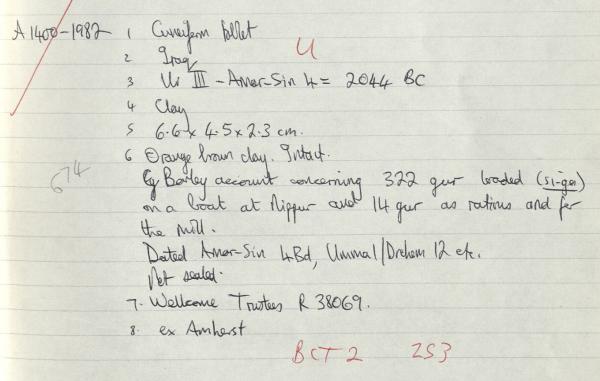 A 1400-1982 1 Cuneiform tablet
U
2 Iraq
3 Ur III - Amar-Sin 4 = 2044 BC
4 Clay
5 6.6 x 4.5 x 2.3 cm.
6 Orange brown clay. Intact.
674
Barley account concerning 322 gur loaded (si-ga)
on a boat at Nippur and 14 gur as rations and for
the mill.
Dated Amar-Sin 4Bd, Ummal/Drehem 12 etc.
Not sealed.
7. Wellcome Trustees R 38069.
8. ex Amherst
BCT 2 253